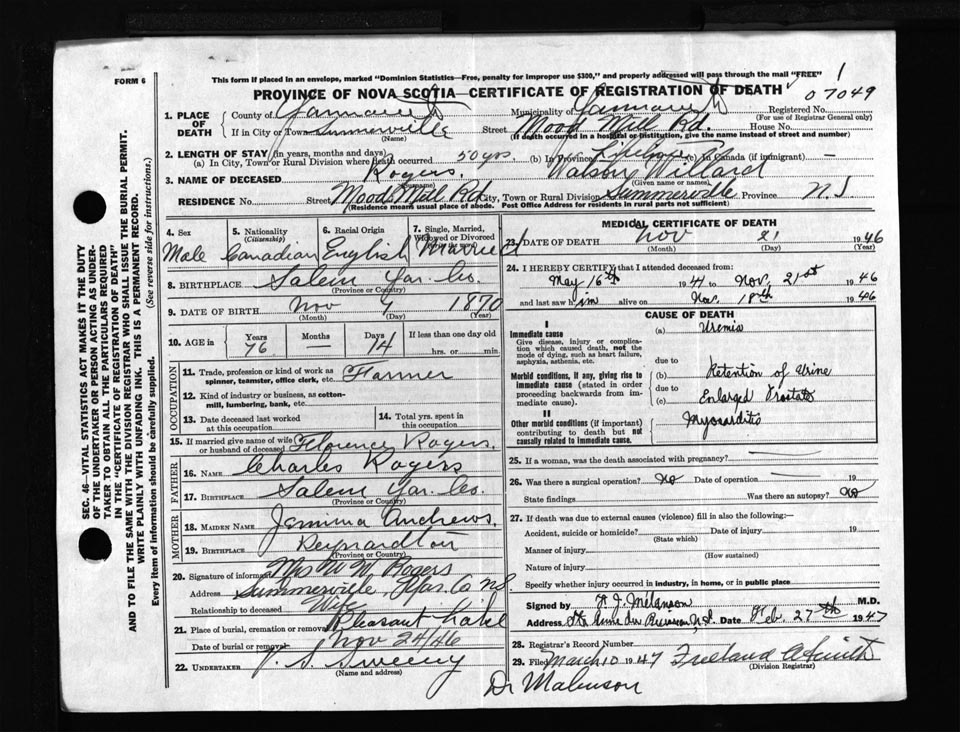 FORM 6
This form if placed in an envelope, marked "Dominion Statistics—Free, penalty for improper use $300," and properly addressed will pass through the mail "FREE"
1
PROVINCE OF NOVA SCOTIA—CERTIFICATE OF REGISTRATION OF DEATH
07049
1. PLACE OF DEATH
County of Yarmouth Municipality of Yarmouth Registered No.
(For use of Registrar General only)
If in City or Town Summerville Street Mood Mill Rd. House No.
(Name) (If death occurred in a hospital or institution, give the name instead of street and number)
2. LENGTH OF STAY (in years, months and days)
(a) In City, Town or Rural Division where death occurred 50 yrs. (b) In Province Lifetime (c) In Canada (if immigrant) —
3. NAME OF DECEASED Rogers, Watson Willard
(Surname) (Given name or names)
RESIDENCE No. Street Mood Mill Rd. City, Town or Rural Division Summerville Province N.S
(Residence means usual place of abode. Post Office Address for residents in rural parts not sufficient)
4. Sex Male
5. Nationality (Citizenship) Canadian
6. Racial Origin English
7. Single, Married, Widowed or Divorced Married
8. BIRTHPLACE Salem Yar. Co.
(Province or Country)
9. DATE OF BIRTH Nov 7 1870
(Month) (Day) (Year)
10. AGE in Years 76 Months — Days 14 If less than one day old hrs. or min.
OCCUPATION
11. Trade, profession or kind of work as spinner, teamster, office clerk, etc. Farmer
12. Kind of industry or business, as cotton-mill, lumbering, bank, etc.
13. Date deceased last worked at this occupation
14. Total yrs. spent in this occupation
15. If married give name of wife or husband of deceased Florence Rogers.
FATHER
16. NAME Charles Rogers
17. BIRTHPLACE Salem Yar. Co.
(Province or Country)
MOTHER
18. MAIDEN NAME Jemima Andrews.
19. BIRTHPLACE Reynardton
(Province or Country)
20. Signature of informant Mrs W W Rogers
Address Summerville, Yar. Co NS
Relationship to deceased Wife
21. Place of burial, cremation or removal Pleasant Lake
Date of burial or removal Nov 24/46
22. UNDERTAKER V. S. Sweeny
(Name and address)
MEDICAL CERTIFICATE OF DEATH
23. DATE OF DEATH Nov 21 1946
(Month) (Day)
24. I HEREBY CERTIFY that I attended deceased from:
May 16th 1941 to Nov. 21st 1946
and last saw him alive on Nov. 18th 1946
CAUSE OF DEATH
I
Immediate cause
Give disease, injury or complication which caused death, not the mode of dying, such as heart failure, asphyxia, asthenia, etc.
(a) Uremia
due to
Morbid conditions, if any, giving rise to immediate cause (stated in order proceeding backwards from immediate cause).
(b) Retention of Urine
due to
(c) Enlarged Prostate
II
Other morbid conditions (if important) contributing to death but not causally related to immediate cause.
Myocarditis
25. If a woman, was the death associated with pregnancy?
26. Was there a surgical operation? No Date of operation 19
State findings Was there an autopsy? No
27. If death was due to external causes (violence) fill in also the following:—
Accident, suicide or homicide? Date of injury 19
(State which)
Manner of injury
(How sustained)
Nature of injury
Specify whether injury occurred in industry, in home, or in public place
Signed by J. Melanson M.D.
Address Date Feb. 27th 1947
28. Registrar's Record Number
29. Filed March 10 1947 Freeland A Smith
(Division Registrar)
Dr
SEC. 46—VITAL STATISTICS ACT MAKES IT THE DUTY
OF THE UNDERTAKER OR PERSON ACTING AS UNDER-
TAKER TO OBTAIN ALL THE PARTICULARS REQUIRED
IN THE "CERTIFICATE OF REGISTRATION OF DEATH"
AND TO FILE THE SAME WITH THE DIVISION REGISTRAR WHO SHALL ISSUE THE BURIAL PERMIT.
WRITE PLAINLY WITH UNFADING INK. THIS IS A PERMANENT RECORD.
Every item of information should be carefully supplied. (See reverse side for instructions.)